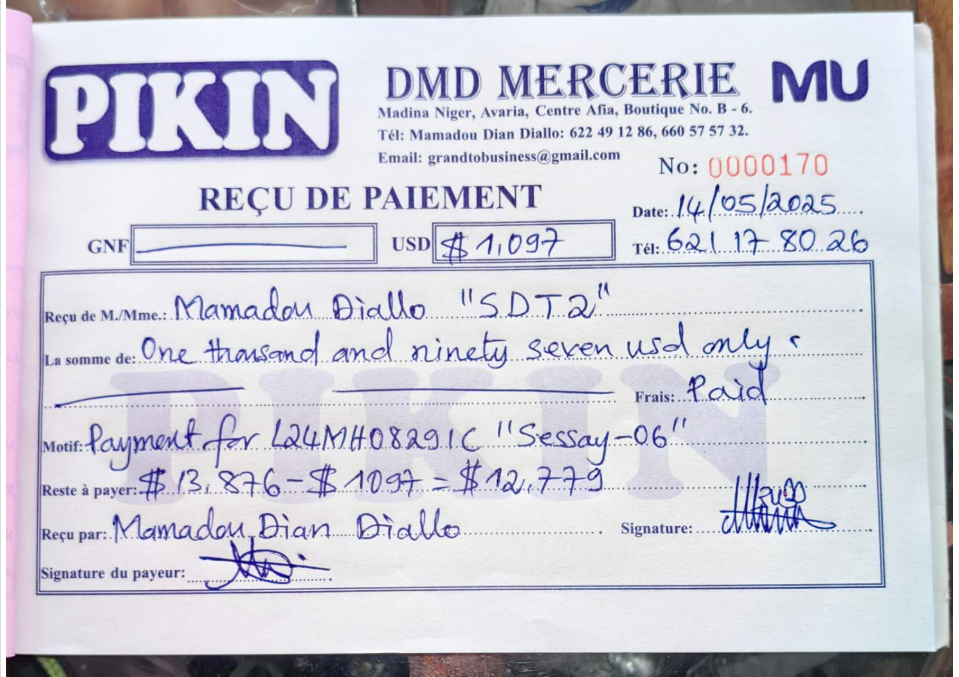 PIKIN
DMD MERCERIE MU
Madina Niger, Avaria, Centre Afia, Boutique No. B - 6.
Tél: Mamadou Dian Diallo: 622 49 12 86, 660 57 57 32.
Email: grandtobusiness@gmail.com
No: 0000170
REÇU DE PAIEMENT
Date: 14/05/2025
GNF USD $ 1,097 Tél: 621 17 80 26
Reçu de M./Mme.: Mamadou Diallo "SDT2"
La somme de: One thousand and ninety seven usd only
Frais: Paid
Motif: Payment for L24MH08291C "Sessay-06"
Reste à payer: $ 13,876 - $ 1097 = $ 12,779
Reçu par: Mamadou Dian Diallo Signature:
Signature du payeur:
PIKIN